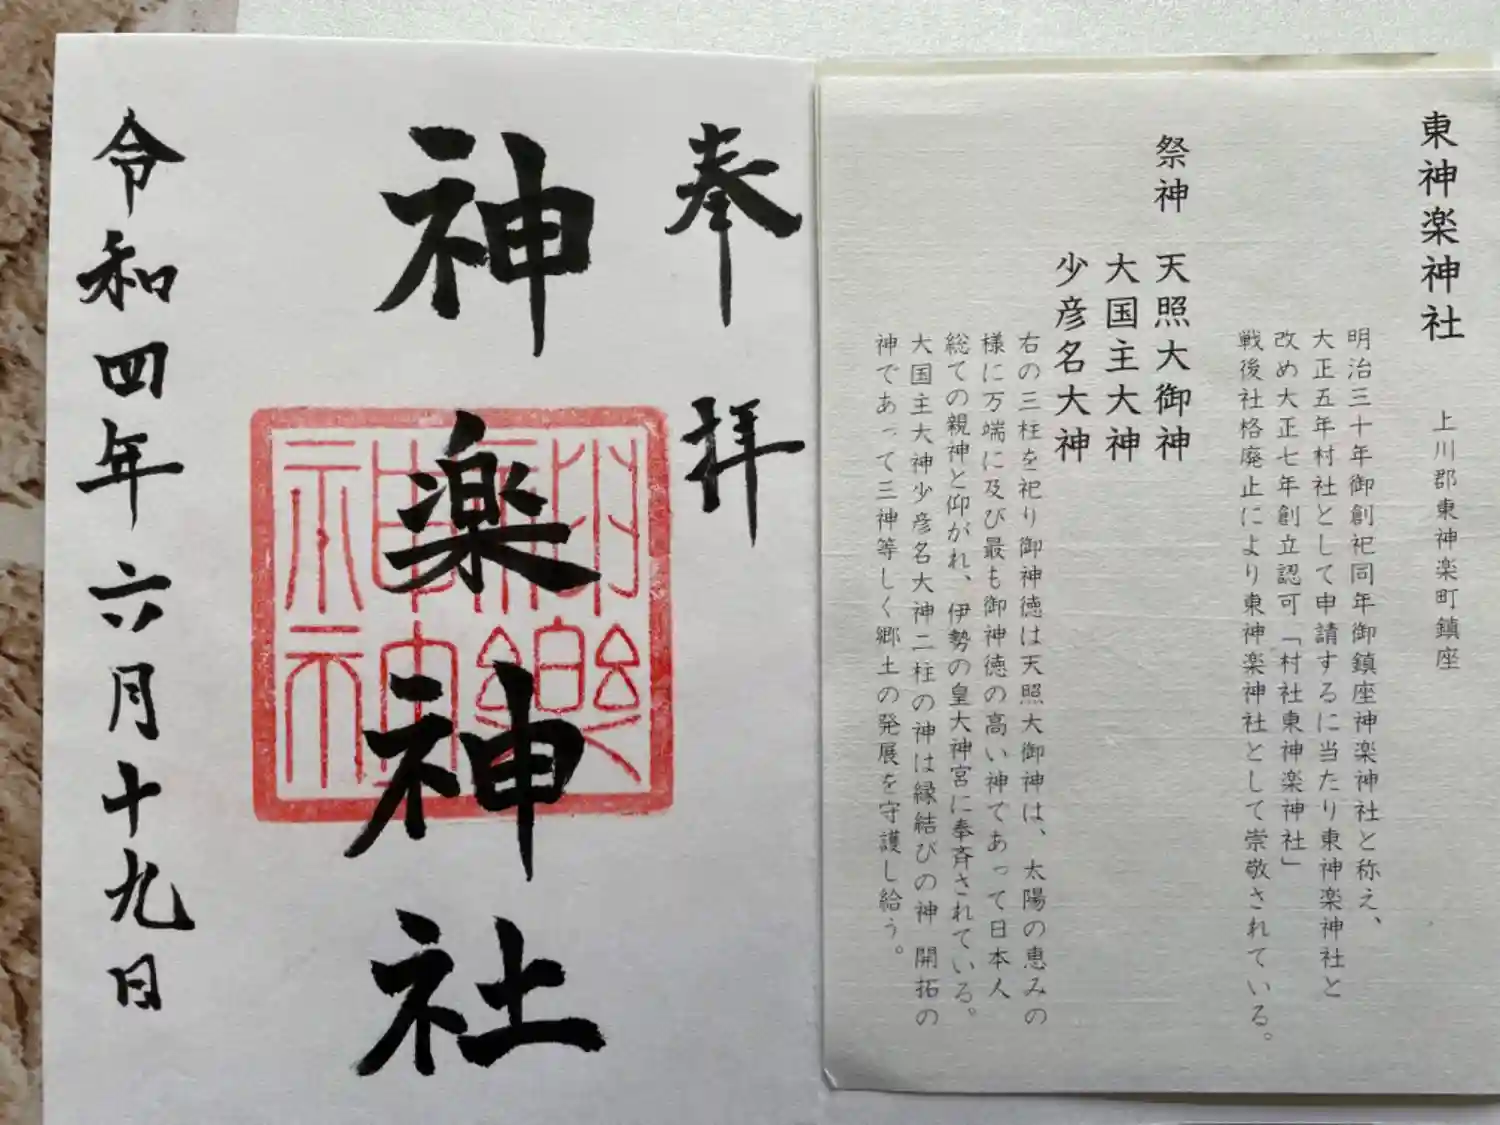 東神楽神社
上川郡東神楽町鎮座
明治三十年御創祀同年御鎮座神楽神社と称え、
大正五年村社として申請するに当たり東神楽神社と
改め大正七年創立認可「村社東神楽神社」
戦後社格廃止により東神楽神社として崇敬されている。
祭神 天照大御神
大国主大神
少彦名大神
右の三柱を祀り御神徳は天照大御神は、太陽の恵みの
様に万端に及び最も御神徳の高い神であって日本人
総ての親神と仰がれ、伊勢の皇大神宮に奉斉されている。
大国主大神少彦名大神二柱の神は縁結びの神 開拓の
神であって三神等しく郷土の発展を守護し給う。
奉拝
神楽神社
令和四年六月十九日